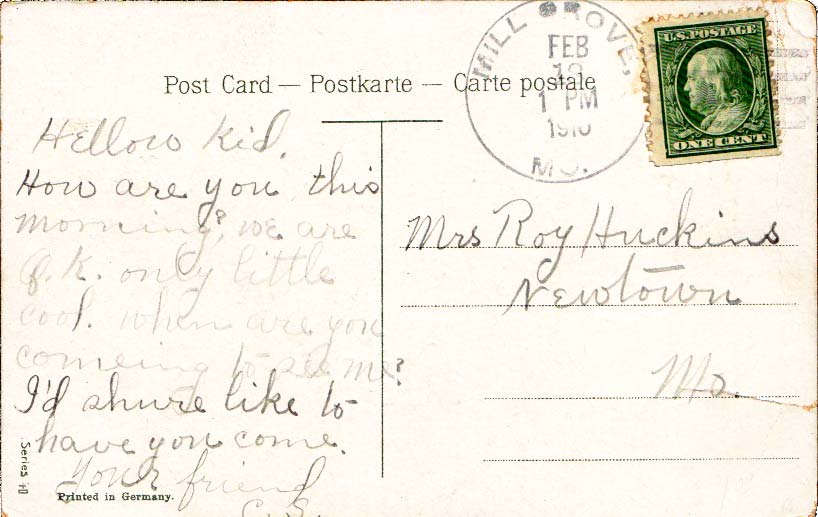 MILL GROVE,
FEB
1 PM
1910
MO.
U.S. POSTAGE
ONE CENT
Post Card — Postkarte — Carte postale
Hellow Kid.
How are you this
morning? we are
O.K. only little
cool. when are you
comeing to see me?
I'd shure like to
have you come.
Your friend
C.S.
Mrs Roy Huckins
Newtown
Mo.
Series
Printed in Germany.